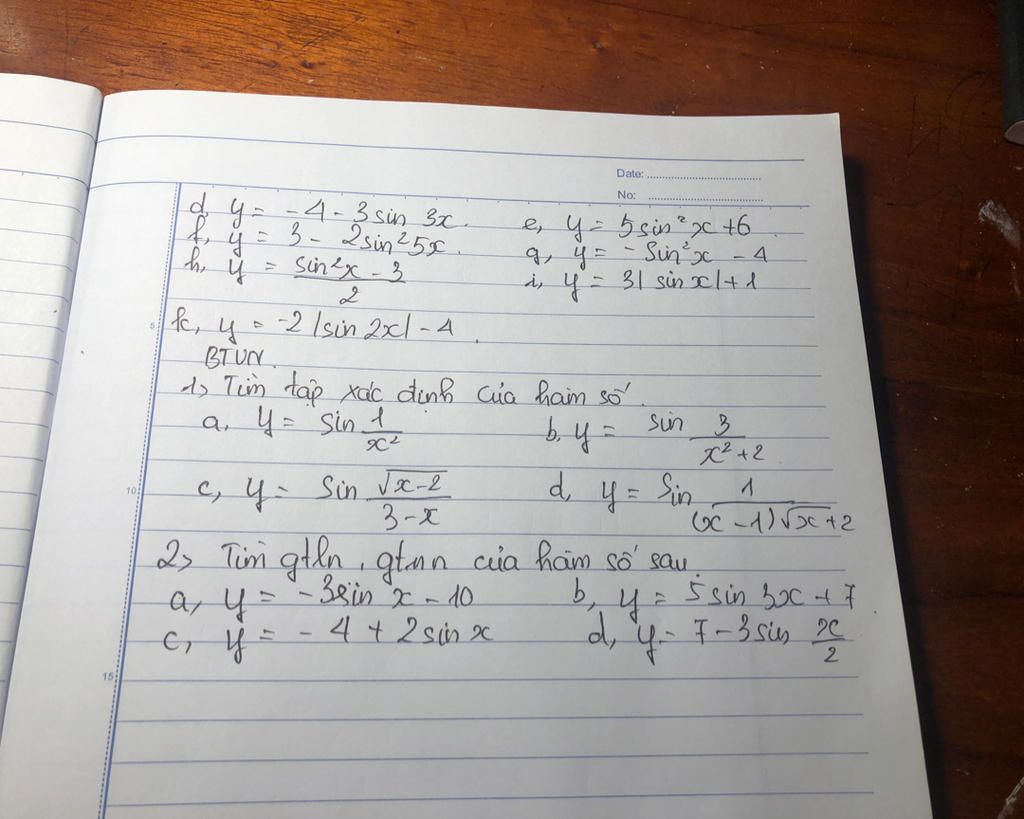 Date: ..............................
No: ..............................
d, y = -4 - 3sin 3x. e, y = 5sin²x + 6.
f, y = 3 - 2sin²5x. g, y = -Sin²x - 4
h, y = (sin²x - 3)/2 i, y = 3|sin x| + 1
k, y = -2|sin 2x| - 4.
BTVN.
1> Tìm tập xác định của hàm số.
a, y = sin 1/x² b, y = sin 3/(x²+2).
c, y = Sin √(x-2)/(3-x) d, y = Sin 1/((x-1)√x+2)
2> Tìm gtln, gtnn của hàm số sau.
a, y = -3sin x - 10 b, y = 5sin 3x + 7.
c, y = -4 + 2sin x d, y = 7 - 3sin x/2
5
10
15